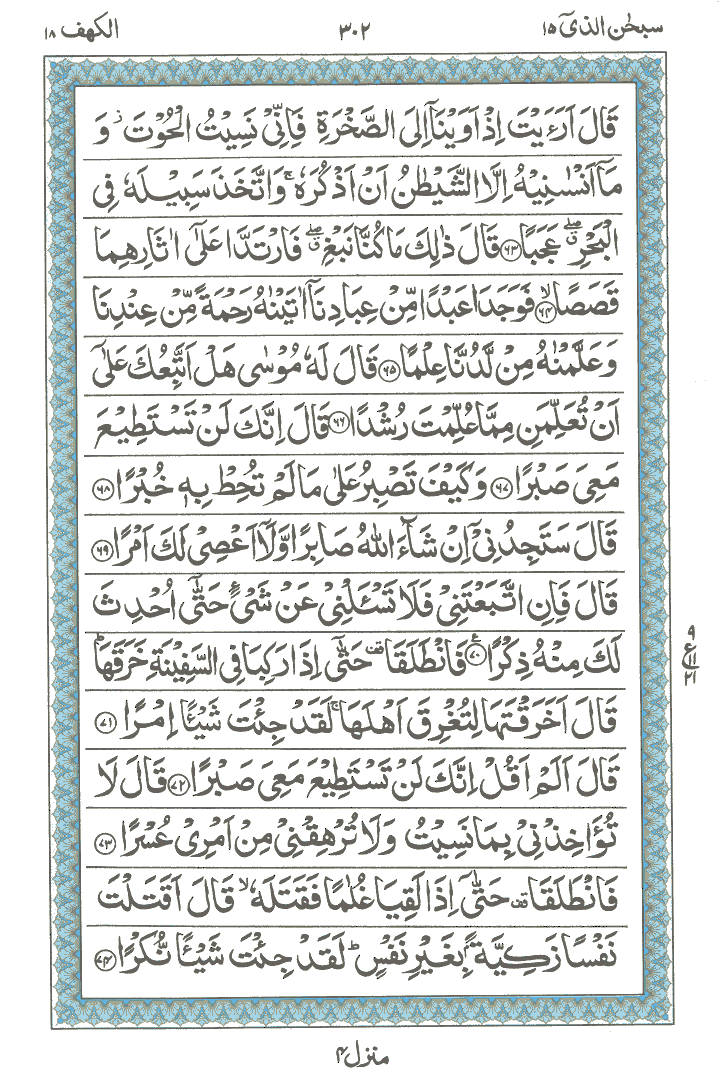 سبحٰن الذیٓ ۱۵
۳۰۲
الکهف ۱۸
قَالَ اَرَءَیْتَ اِذْ اَوَیْنَاۤ اِلَی الصَّخْرَةِ فَاِنِّیْ نَسِیْتُ الْحُوْتَ ؗ وَ
مَاۤ اَنْسٰىنِیْهُ اِلَّا الشَّیْطٰنُ اَنْ اَذْكُرَهٗ ۚ وَاتَّخَذَ سَبِیْلَهٗ فِی
الْبَحْرِ ۖۗ عَجَبًا ﴿۶۳﴾ قَالَ ذٰلِكَ مَا كُنَّا نَبْغِ ۖۗ فَارْتَدَّا عَلٰۤی اٰثَارِهِمَا
قَصَصًا ﴿۶۴﴾ۙ فَوَجَدَا عَبْدًا مِّنْ عِبَادِنَاۤ اٰتَیْنٰهُ رَحْمَةً مِّنْ عِنْدِنَا
وَعَلَّمْنٰهُ مِنْ لَّدُنَّا عِلْمًا ﴿۶۵﴾ قَالَ لَهٗ مُوْسٰی هَلْ اَتَّبِعُكَ عَلٰۤی
اَنْ تُعَلِّمَنِ مِمَّا عُلِّمْتَ رُشْدًا ﴿۶۶﴾ قَالَ اِنَّكَ لَنْ تَسْتَطِیْعَ
مَعِیَ صَبْرًا ﴿۶۷﴾ وَكَیْفَ تَصْبِرُ عَلٰی مَا لَمْ تُحِطْ بِهٖ خُبْرًا ﴿۶۸﴾
قَالَ سَتَجِدُنِیْۤ اِنْ شَآءَ اللّٰهُ صَابِرًا وَّلَاۤ اَعْصِیْ لَكَ اَمْرًا ﴿۶۹﴾
قَالَ فَاِنِ اتَّبَعْتَنِیْ فَلَا تَسْـَٔلْنِیْ عَنْ شَیْءٍ حَتّٰۤی اُحْدِثَ
لَكَ مِنْهُ ذِكْرًا ﴿۷۰﴾۠ فَانْطَلَقَا ۥ حَتّٰۤی اِذَا رَكِبَا فِی السَّفِیْنَةِ خَرَقَهَا ؕ
۹
ع
۱۱
۲۱
قَالَ اَخَرَقْتَهَا لِتُغْرِقَ اَهْلَهَا ۚ لَقَدْ جِئْتَ شَیْـًٔا اِمْرًا ﴿۷۱﴾
قَالَ اَلَمْ اَقُلْ اِنَّكَ لَنْ تَسْتَطِیْعَ مَعِیَ صَبْرًا ﴿۷۲﴾ قَالَ لَا
تُؤَاخِذْنِیْ بِمَا نَسِیْتُ وَلَا تُرْهِقْنِیْ مِنْ اَمْرِیْ عُسْرًا ﴿۷۳﴾
فَانْطَلَقَا ۥ حَتّٰۤی اِذَا لَقِیَا غُلٰمًا فَقَتَلَهٗ ۙ قَالَ اَقَتَلْتَ
نَفْسًا زَكِیَّةًۢ بِغَیْرِ نَفْسٍ ؕ لَقَدْ جِئْتَ شَیْـًٔا نُّكْرًا ﴿۷۴﴾
منزل ۴